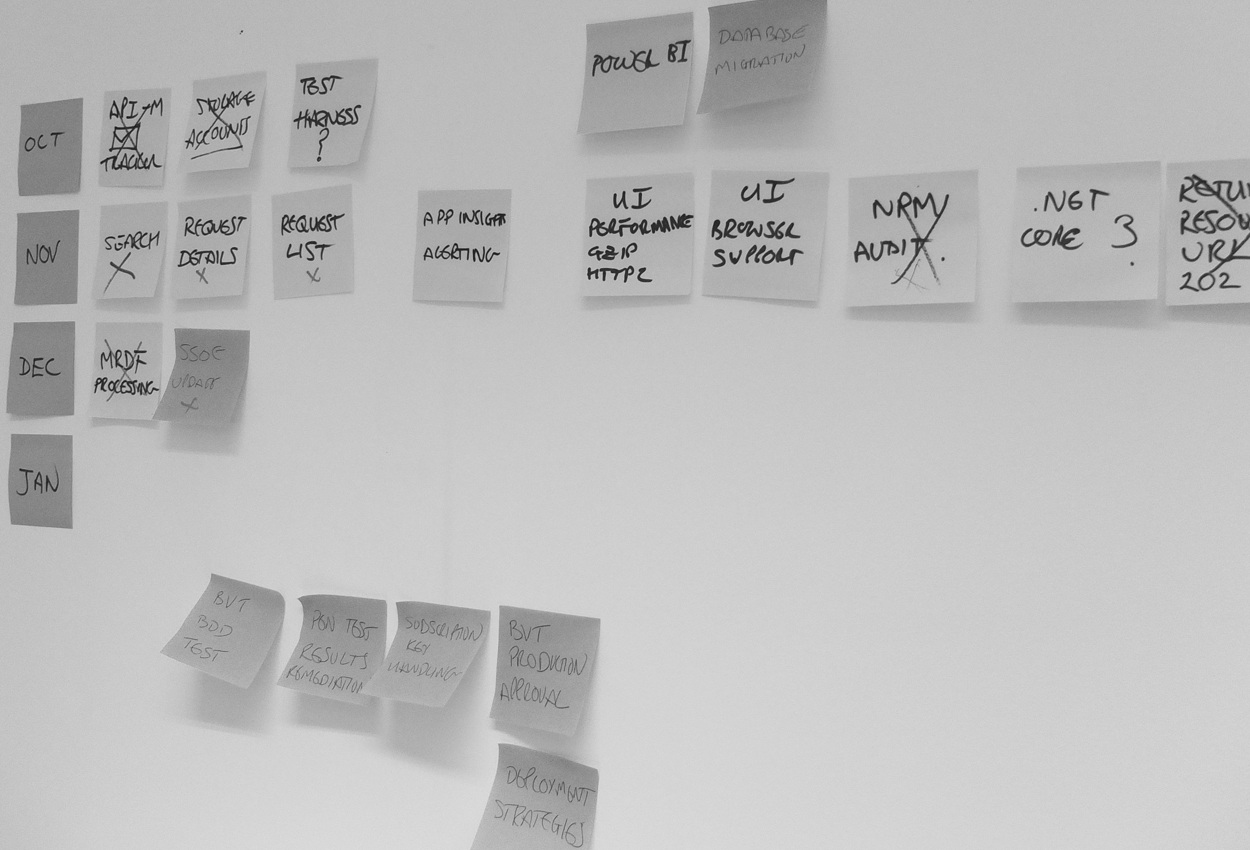 POWER BI
DATABASE
MIGRATION
OCT
API-M
TRACKER
STORAGE
ACCOUNTS
TEST
HARNESS
?
NOV
SEARCH
X
REQUEST
DETAILS
X
REQUEST
LIST
X
APP INSIGHT
ALERTING
UI
PERFORMANCE
GZIP
HTTP2
UI
BROWSER
SUPPORT
NRM
AUDIT.
.NET
CORE 3
RESOU
URL
202
DEC
MRDF
PROCESSING
UPDATE
X
JAN
BVT
TEST
PEN TEST
RESULTS
REMEDIATION
SUBSCRIPTION
KEY
HANDLING
BVT
PRODUCTION
APPROVAL
DEPLOYMENT
STRATEGIES